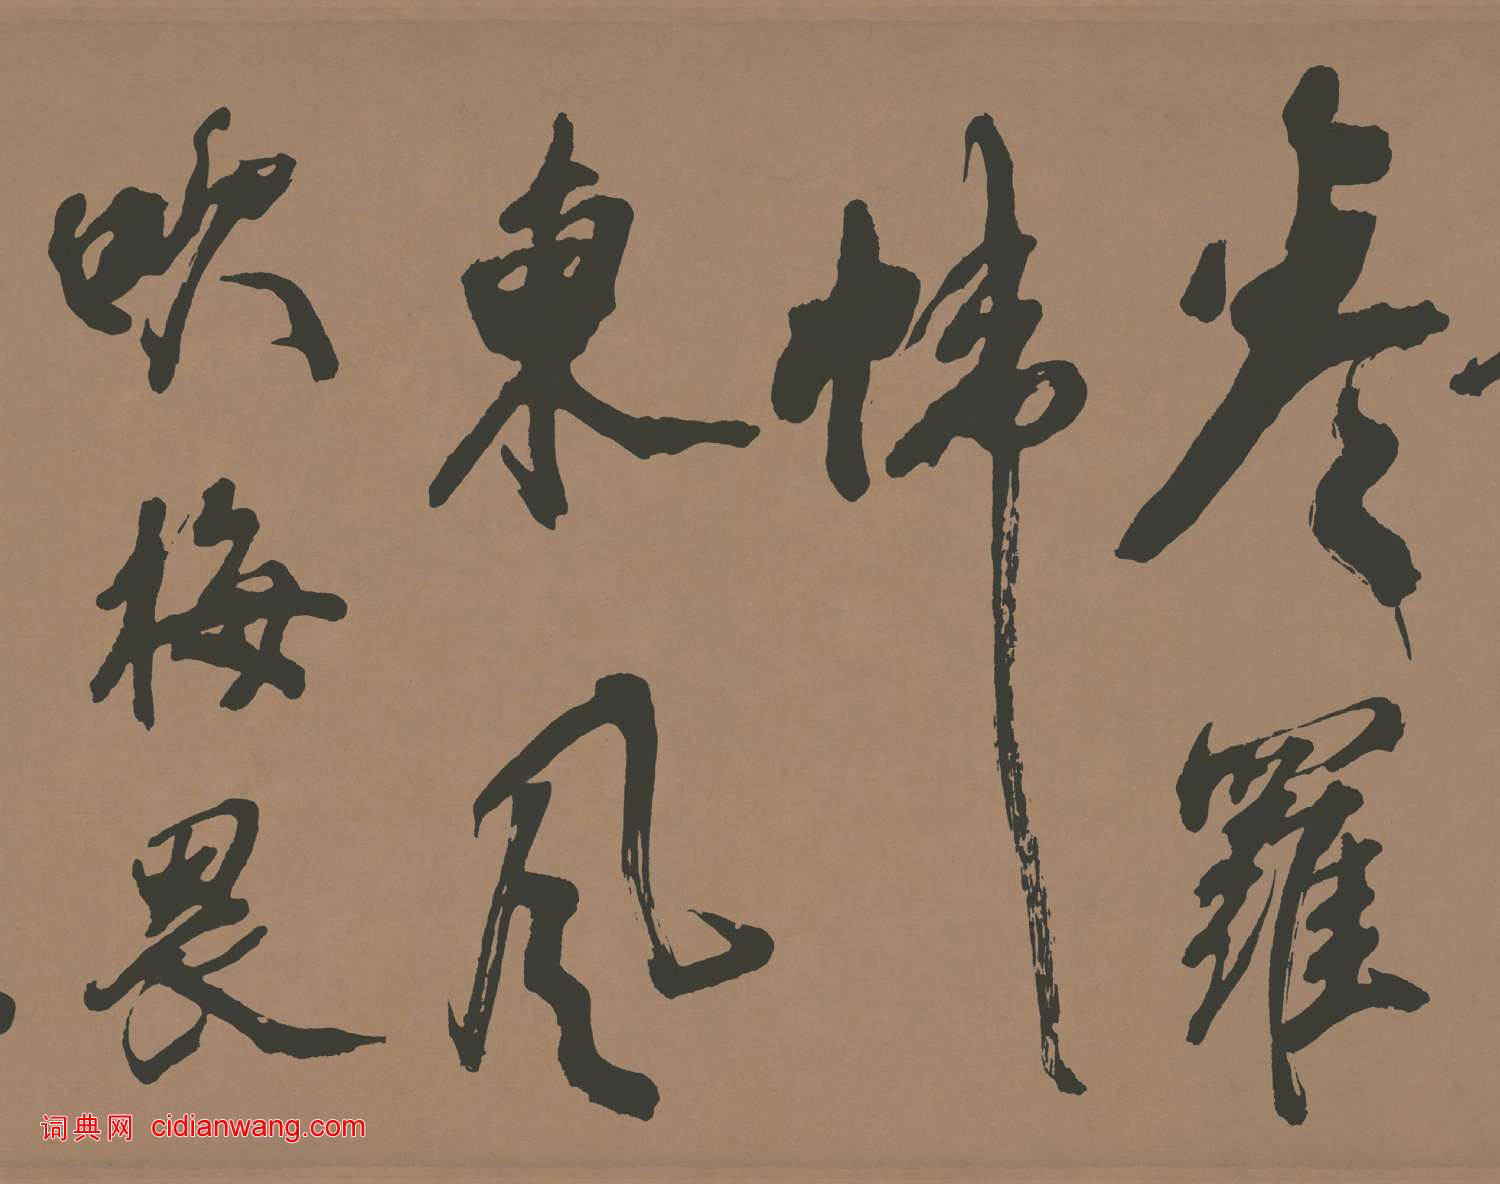 卷羅
幃
東風
吹梅畏
词典网 cidianwang.com